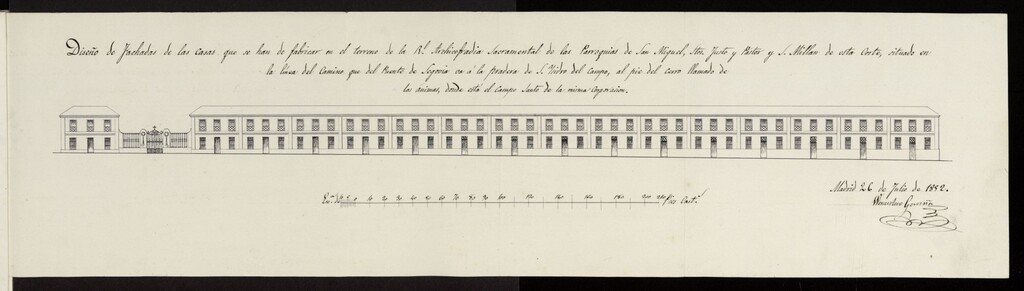 Diseño de Fachadas de las casas que se han de fabricar en el terreno de la Rl. Archicofradia Sacramental de las Parroquias de San Miguel, Stos. Justo y Pastor y S. Millan de esta Corte, situado en
la linea del Camino que del Puente de Segovia va á la pradera de S. Ysidro del Campo, al pie del cerro llamado de
las animas, donde está el Campo Santo de la misma Corporacion.
Madrid 26 de Julio de 1852.
Wenceslao Gaviña
0 10 20 30 40 50 60 70 80 90 100 120 140 160 180 200 210 Pies Casts.